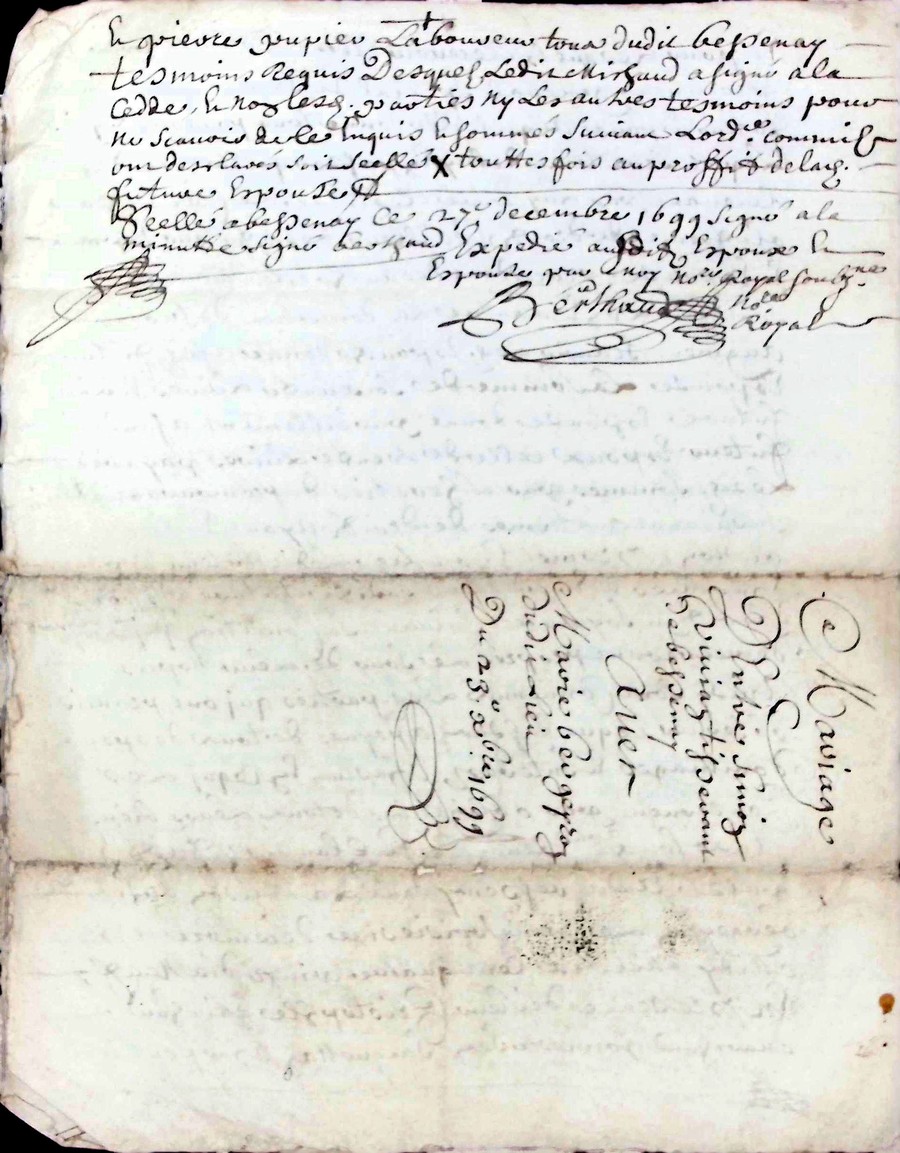 Et pierre pupier Laboureur tous dudit bessenay
tesmoins Requis Desquels Ledit Michaud a signé a la
Cedde, Et non lesd. parties ny Les autres tesmoins pour
ne scavoir de ce Enquis Et sommés suivant Lord.ce commis
ont desclarés soit scellés X touttesfois au proffit de lad.
future Espouse
Scellé a bessenay ce 27e decembre 1699 signé a la
minutte signé berthaud Expedié ausdits Espoux Et
Espouse par moy no.re Royal soubz.né
Berthaud No.re
Royal
Mariage
D'Entre
tisserant
de bessenay
Avec
Marie
dudit Lieu
Du 23e xbre 1699